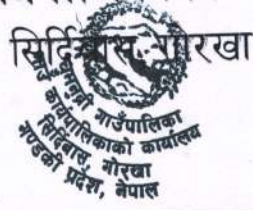 सिर्दिबास, गोरखा
गाउँपालिका
कार्यपालिकाको कार्यालय
सिर्दिबास, गोरखा
गण्डकी प्रदेश, नेपाल